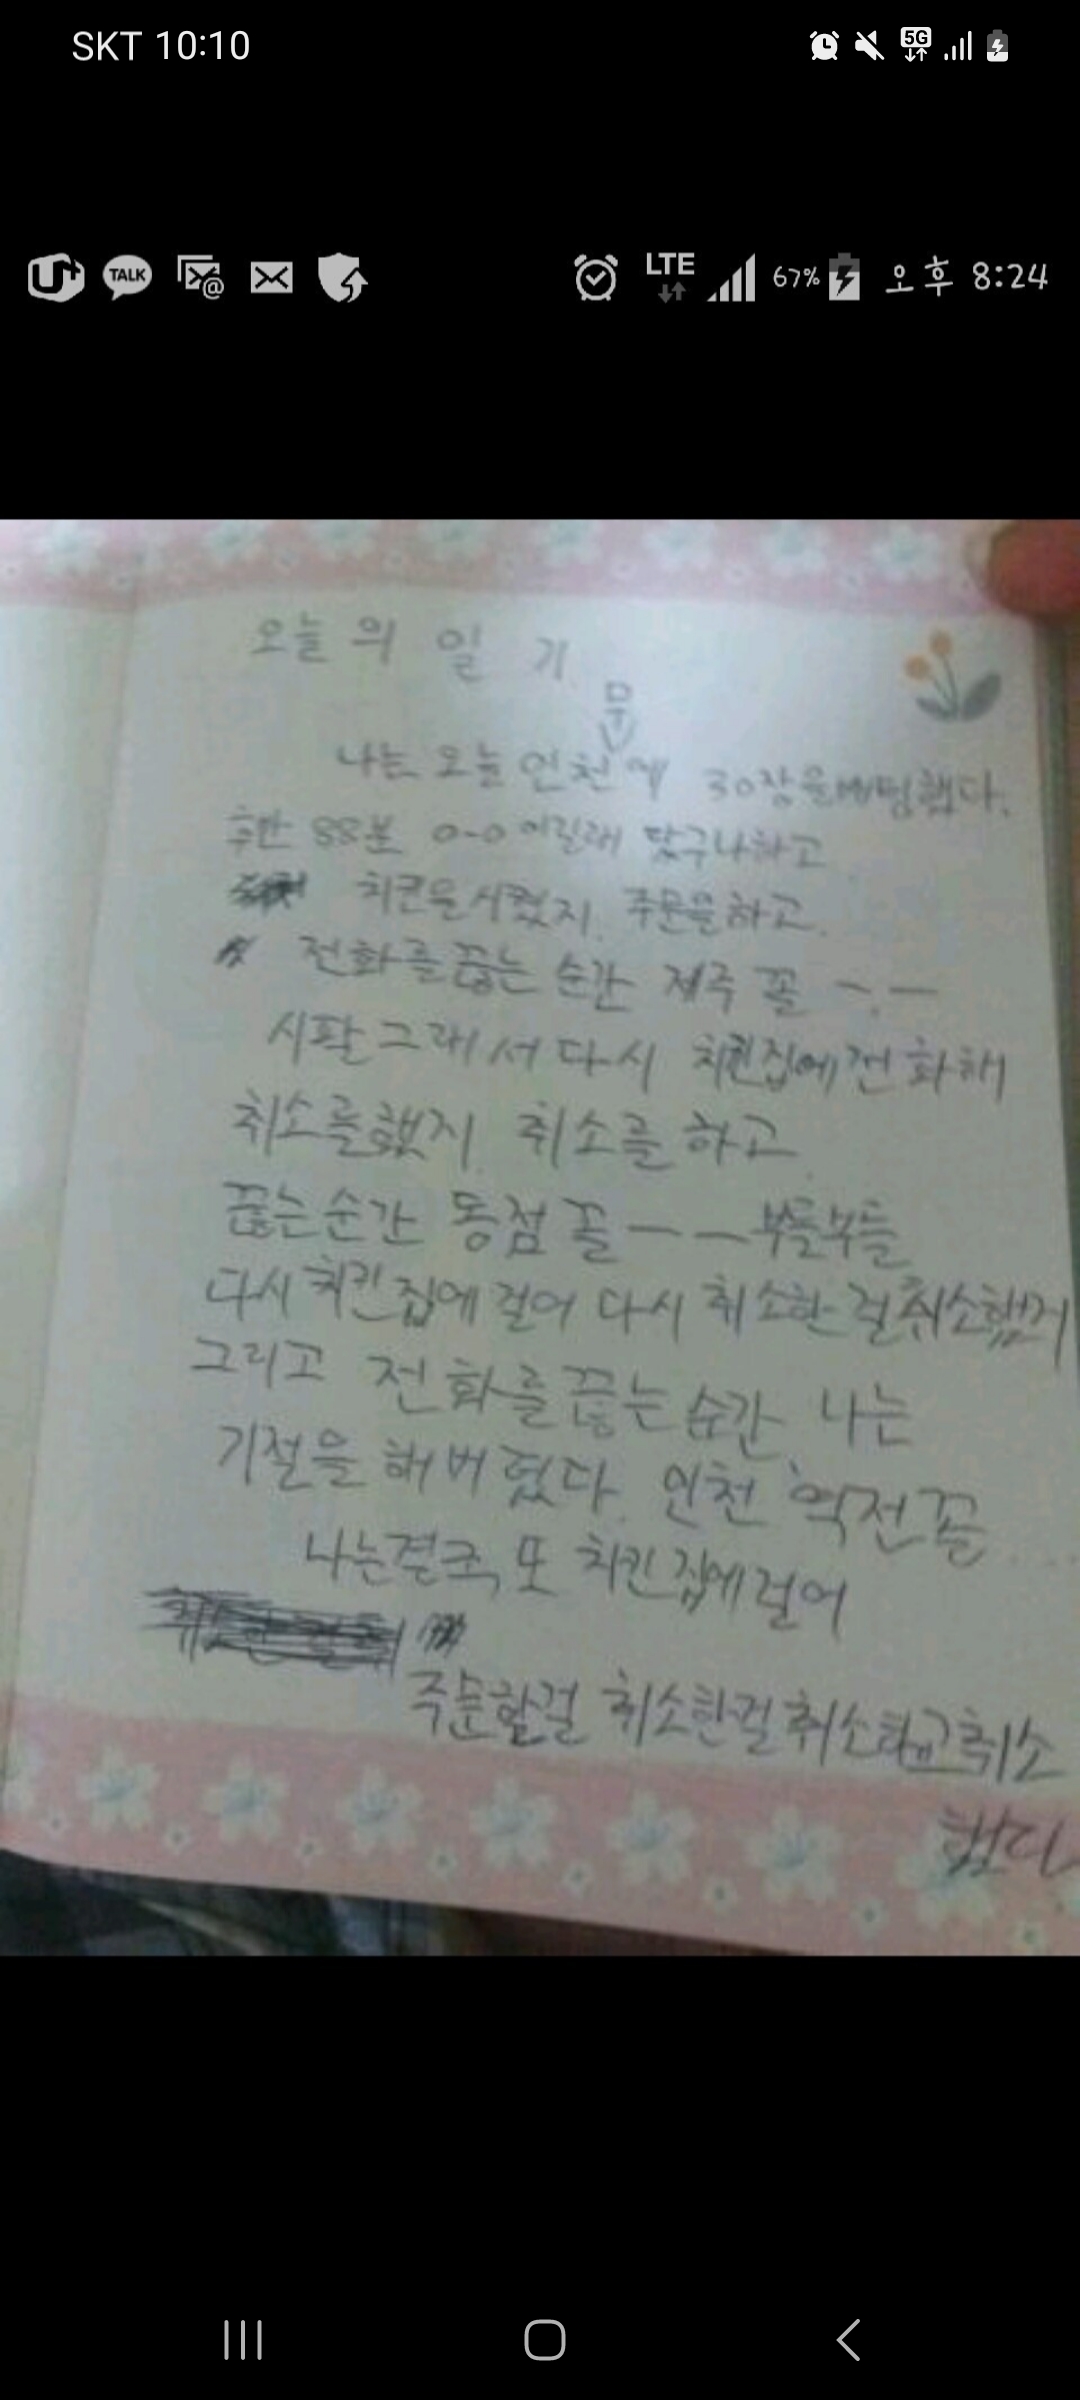 SKT 10:10
5G
U+ TALK @ LTE 67% 오후 8:24
오늘의 일기
무
V
나는 오늘 인천에 30장을베팅했다.
후반 88분 0-0 이길래 땄구나하고
치킨을시켰지. 주문을하고.
전화를끊는 순간 제주 꼴 ㅡ.ㅡ
시팔 그래서 다시 치킨집에전화해
취소를했지. 취소를 하고
끊는순간 동점꼴ㅡㅡ부들부들
다시치킨집에 걸어 다시 취소한걸취소했지
그리고 전화를끊는순간 나는
기절을해버렸다. 인천 역전꼴....
나는결국, 또 치킨집에걸어
주문한걸 취소한걸취소하고취소
했다